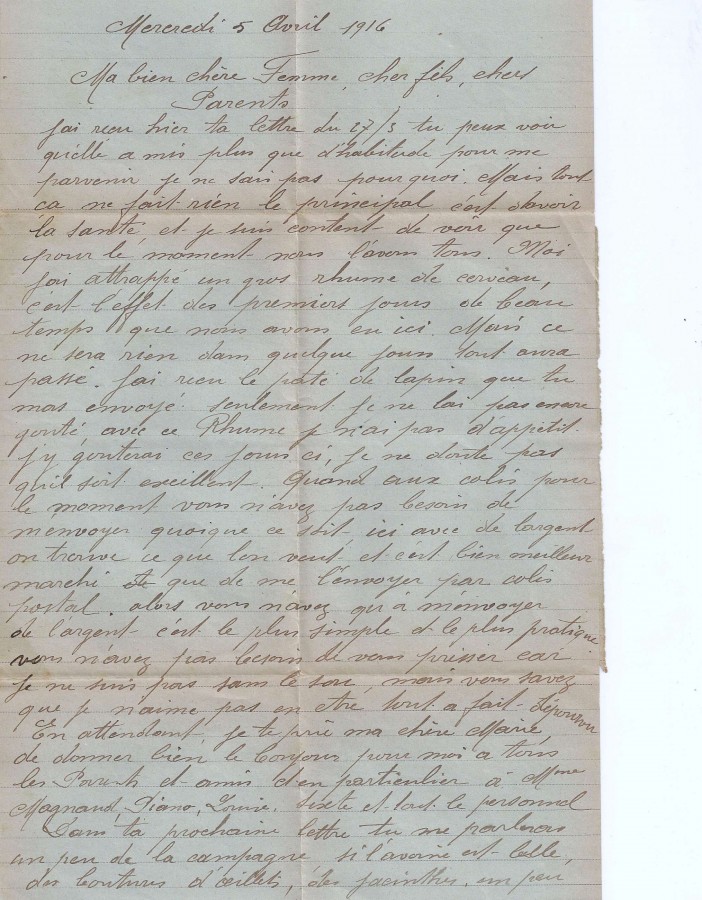 Mercredi 5 Avril 1916
Ma bien chère Femme, cher fils, chers
Parents
J'ai reçu hier ta lettre du 27/3 tu peux voir
qu'elle a mis plus que d'habitude pour me
parvenir je ne sais pas pourquoi. Mais tout
ca ne fait rien le principal c'est d'avoir
la santé, et je suis content de voir que
pour le moment nous l'avons tous. Moi
j'ai attrappé un gros rhume de cerveau,
c'est l'effet des premiers jours de beau
temps que nous avons eu ici. Mais ce
ne sera rien dans quelque jours tout aura
passé. J'ai reçu le paté de lapin que tu
mas envoyé seulement je ne lai pas encore
gouté, avec ce Rhume je n'ai pas d'appétit.
J'y gouterai ces jours ci, je ne doute pas
qu'il soit excillent. Quand aux colis pour
le moment vous n'avez pas besoin de
m'envoyer quoique ce soit, ici avec de largent
on trouve ce que lon veut, et c'est bien meilleur
marché que de me l'envoyer par colis
postal. alors vous n'avez qu'à m'envoyer
de l'argent c'est le plus simple et le plus pratique
vous n'avez pas besoin de vous presser car
je ne suis pas sans le sou, mais vous savez
que je n'aime pas en etre tout a fait dépourvu
En attendant, je te prie ma chère Marie,
de donner bien le bonjour pour moi a tous
les Parents et amis d'en particulier à Mme
Magnaud, Piano, Louise, Sixte et tout le personnel
Dans ta prochaine lettre tu me parleras
un peu de la campagne si l'avoine est belle,
des boutures d'œillets, des jacinthes, un peu